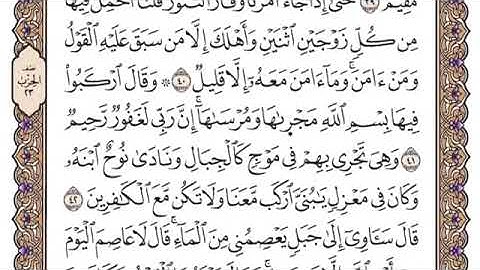 مُّقِيمٌ ٣٩ حَتَّىٰٓ إِذَا جَآءَ أَمْرُنَا وَفَارَ ٱلتَّنُّورُ قُلْنَا ٱحْمِلْ فِيهَا
مِن كُلٍّ زَوْجَيْنِ ٱثْنَيْنِ وَأَهْلَكَ إِلَّا مَن سَبَقَ عَلَيْهِ ٱلْقَوْلُ
وَمَنْ ءَامَنَ ۚ وَمَآ ءَامَنَ مَعَهُۥٓ إِلَّا قَلِيلٌ ٤٠ ۞ وَقَالَ ٱرْكَبُوا۟
فِيهَا بِسْمِ ٱللَّهِ مَجْر۪ىٰهَا وَمُرْسَىٰهَآ ۚ إِنَّ رَبِّى لَغَفُورٌ رَّحِيمٌ
٤١ وَهِىَ تَجْرِى بِهِمْ فِى مَوْجٍ كَٱلْجِبَالِ وَنَادَىٰ نُوحٌ ٱبْنَهُۥ
وَكَانَ فِى مَعْزِلٍ يَٰبُنَىَّ ٱرْكَب مَّعَنَا وَلَا تَكُن مَّعَ ٱلْكَٰفِرِينَ ٤٢
قَالَ سَـَٔاوِىٓ إِلَىٰ جَبَلٍ يَعْصِمُنِى مِنَ ٱلْمَآءِ ۚ قَالَ لَا عَاصِمَ ٱلْيَوْمَ
نصف
الحزب
٢٣